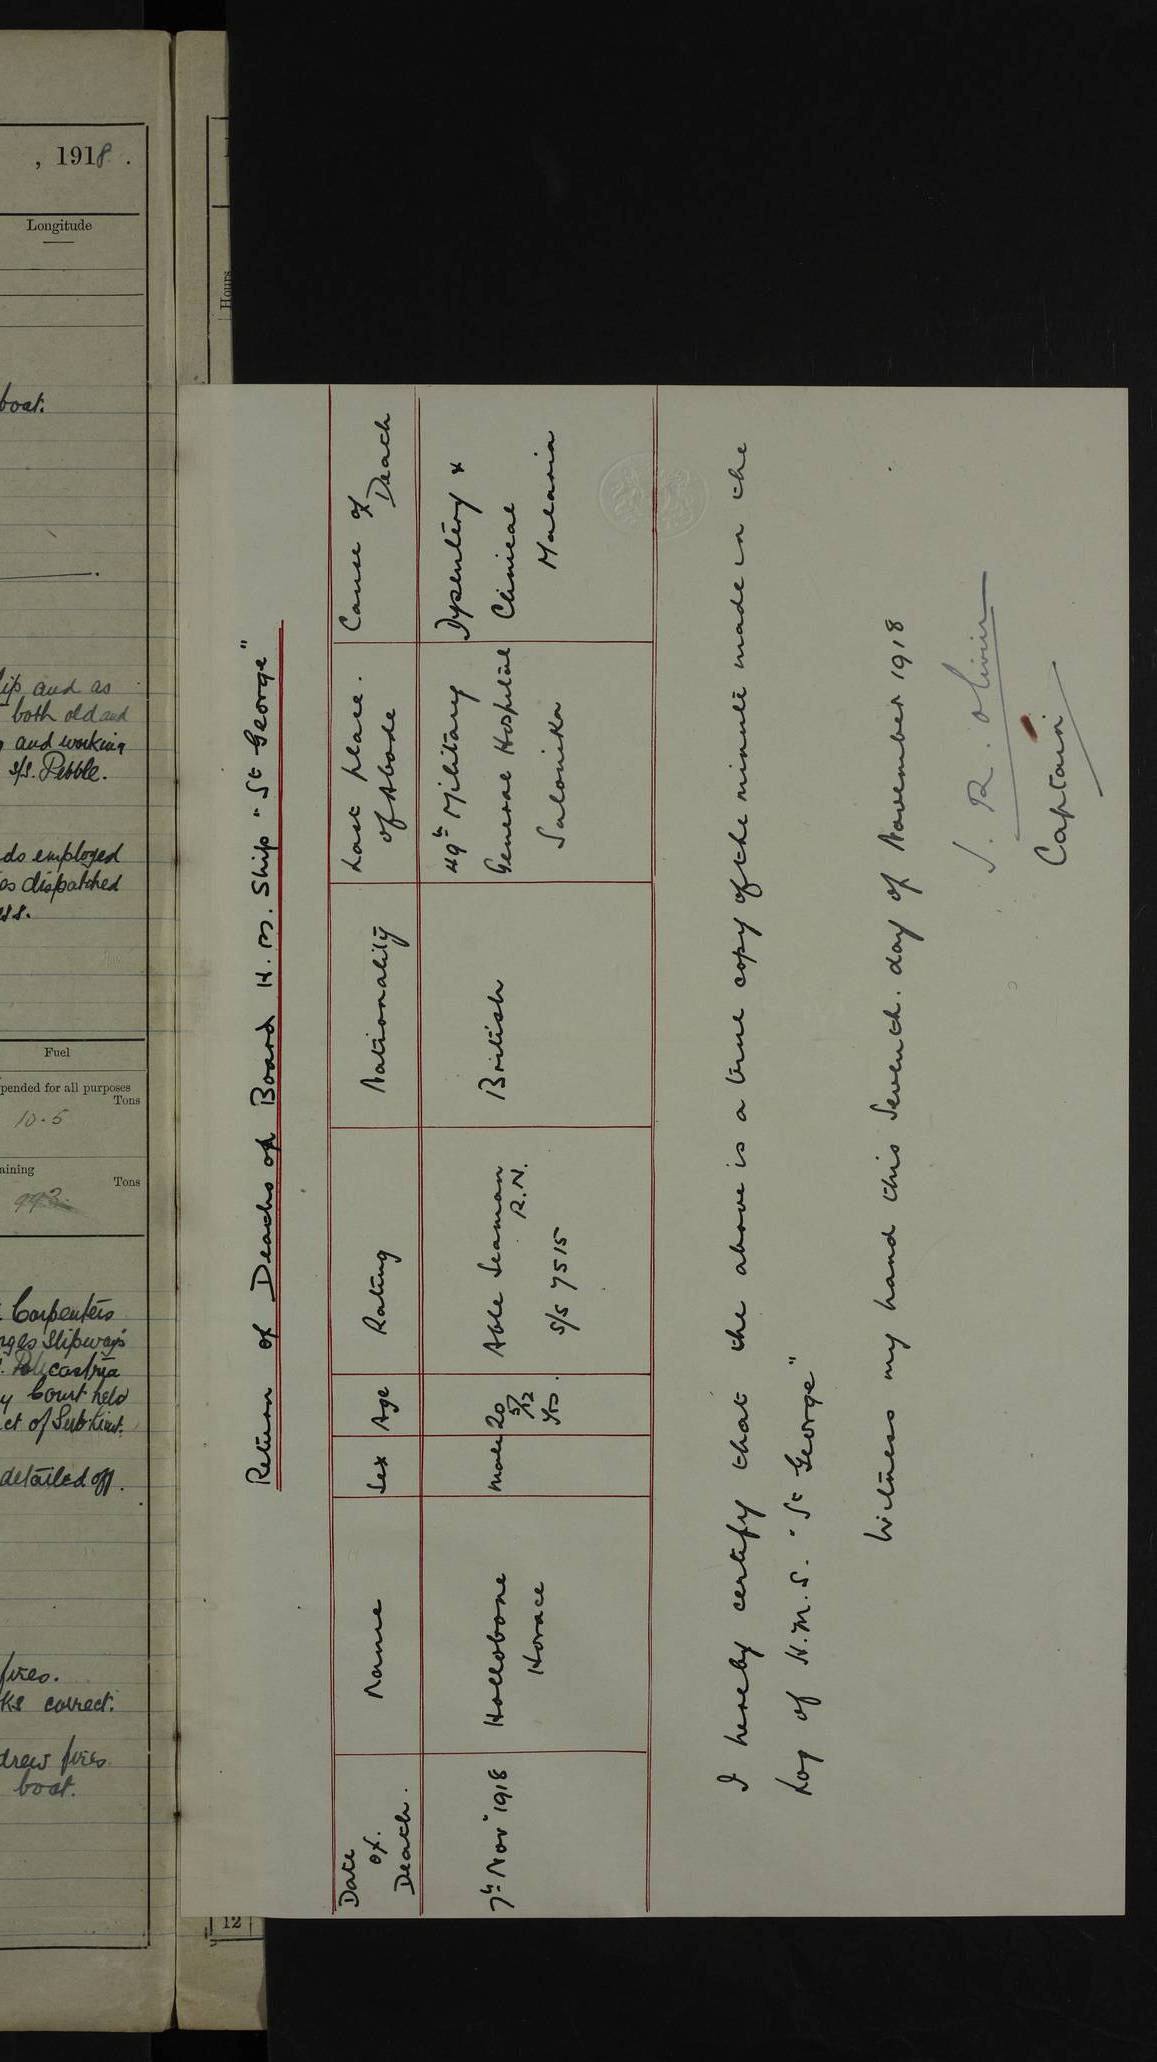 , 1918.
Longitude
boat.
ip and as
both old and
and working
s/s. Pebble.
ds employed
os dispatched
ess.
Fuel
pended for all purposes
Tons
10.5
aining
Tons
993
Carpenters
Slipways
y Court held
ct of Sub Lieut.
detailed off.
fires.
ks correct.
drew fires
boat.
Hours
12
Return of Deaths on Board H.M. Ship "St George"
Date of Death. Name Sex Age Rating Nationality Last place of Abode Cause of Death
7th Nov 1918 Hollobone Horace Male 20 5/12 Yrs. Able Seaman R.N. S/S 7515 British 49th Military General Hospital Salonika Dysentery & Clinical Malaria
I hereby certify that the above is a true copy of the minute made in the
Log of H.M.S. "St George"
Witness my hand this Seventh. day of November 1918
S. R. Olivier
Captain